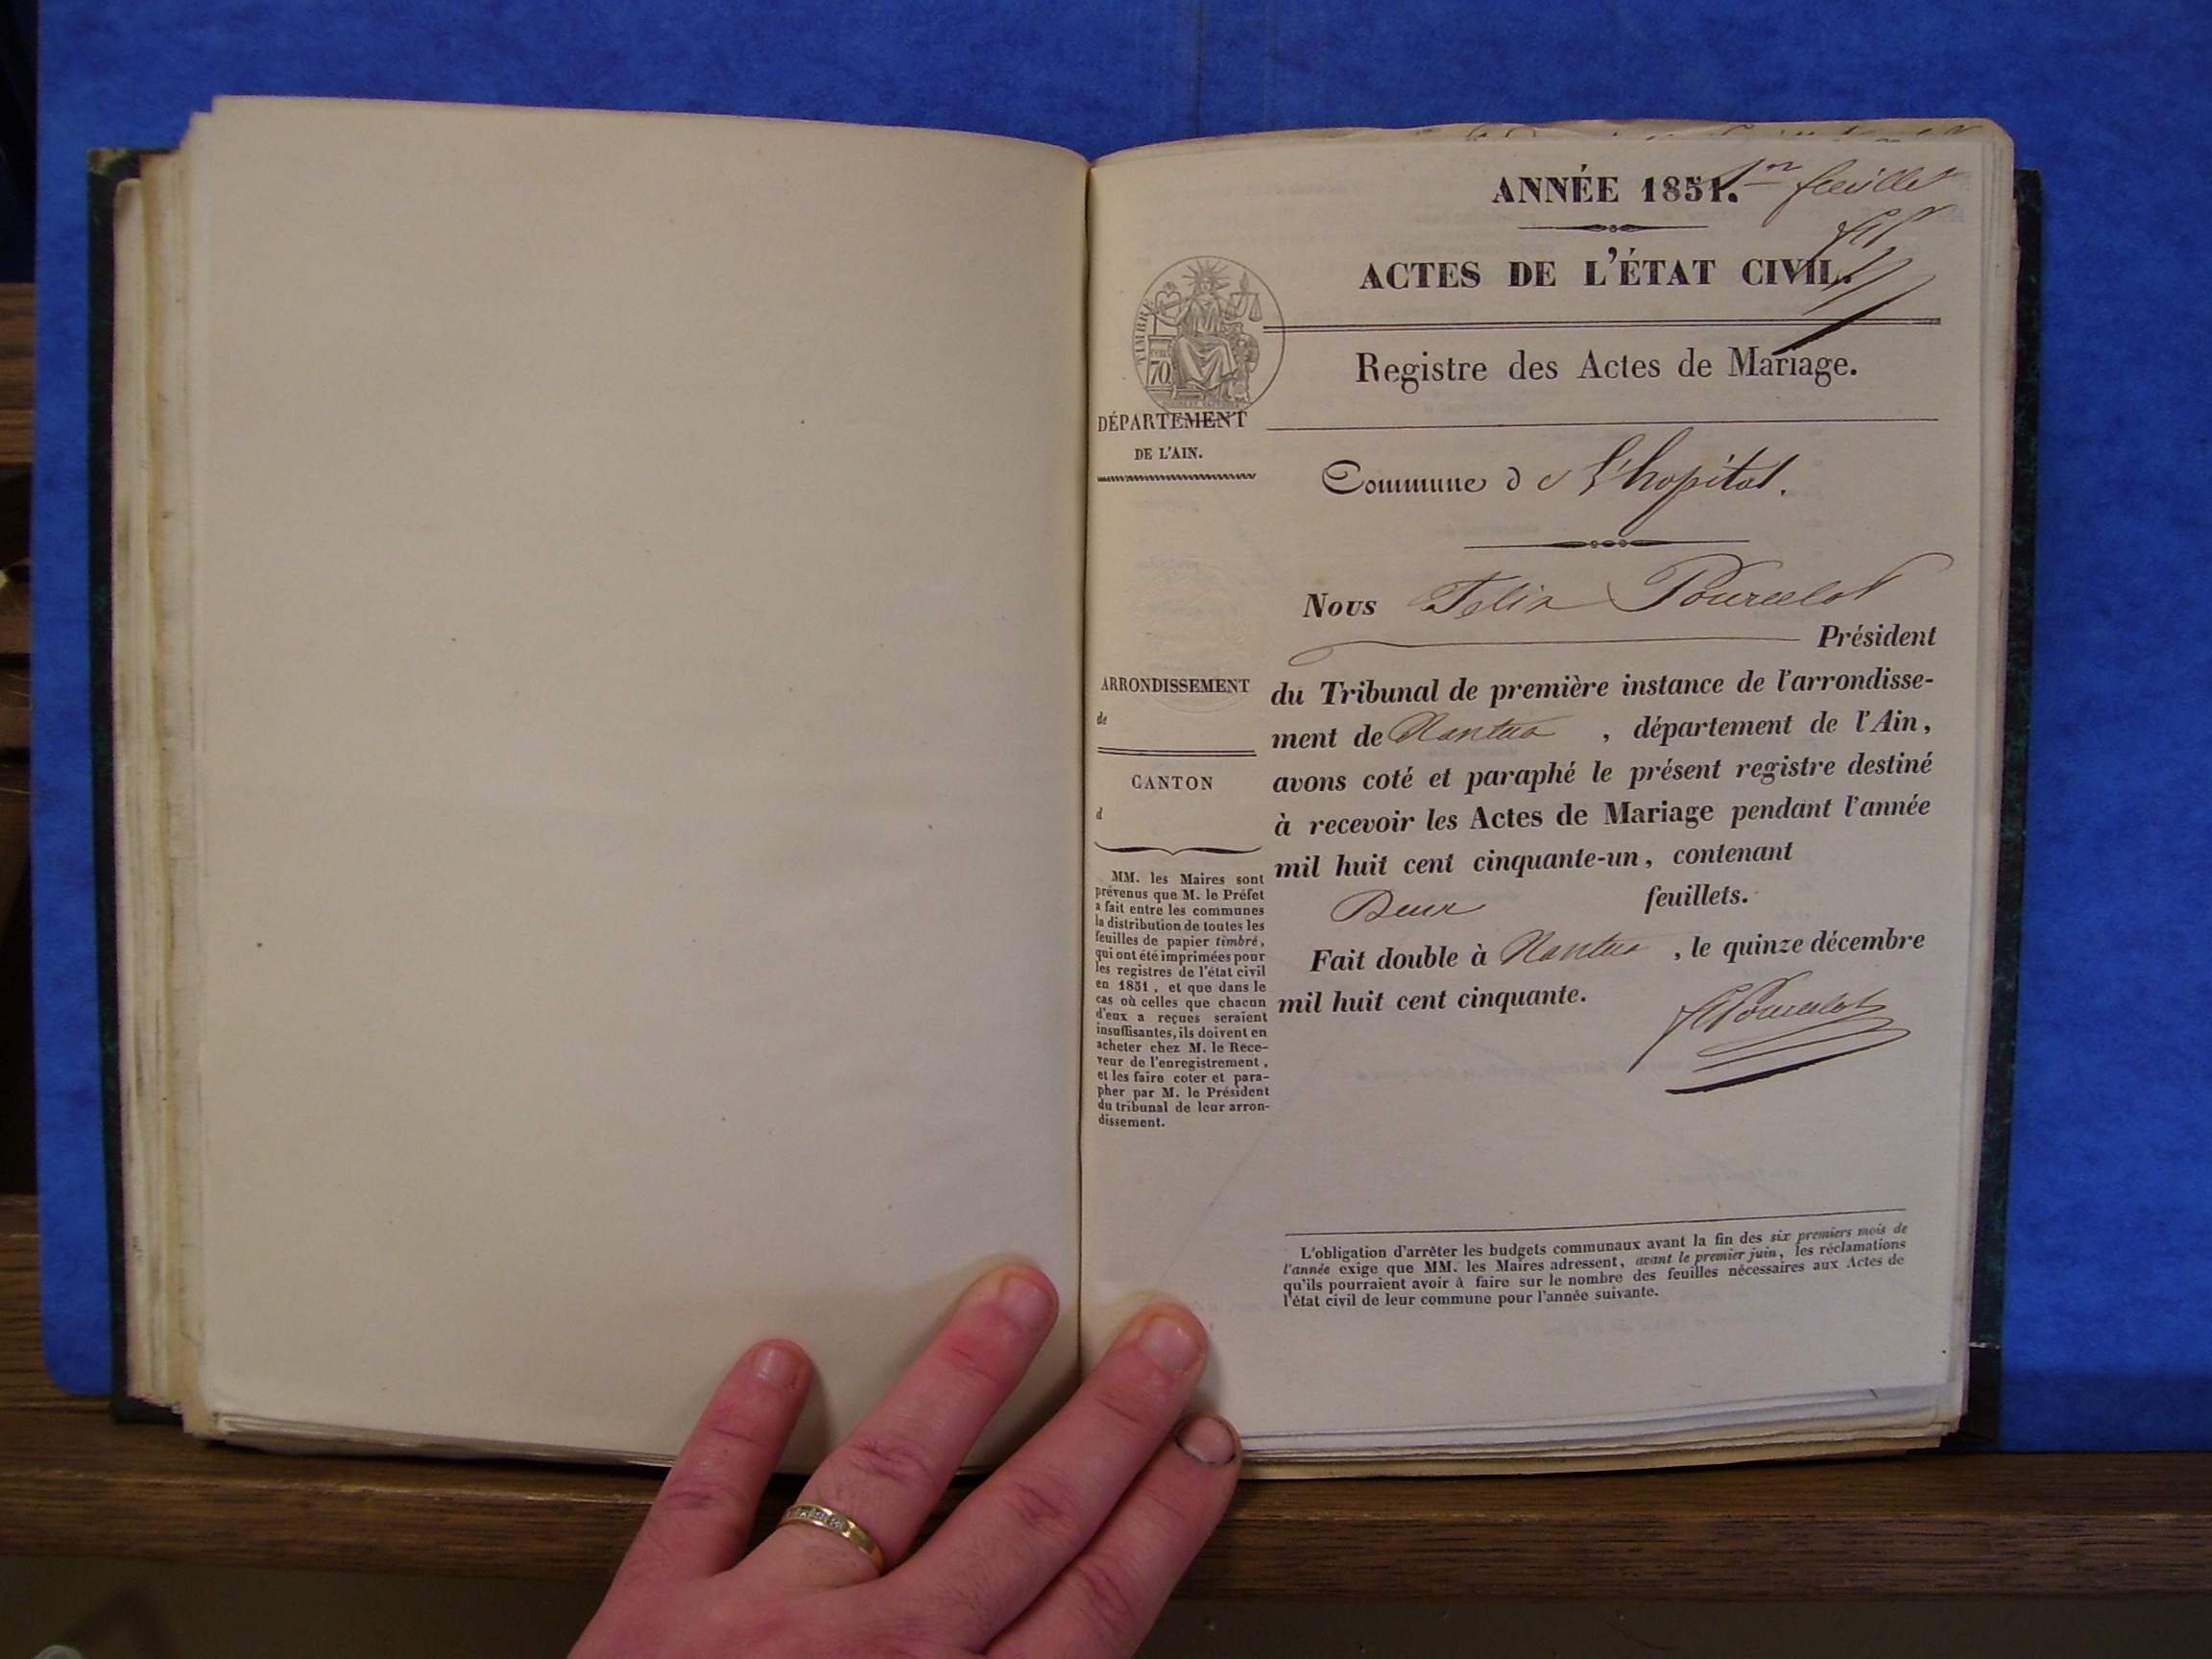 ANNÉE 1851. 1er feuillet
ACTES DE L'ÉTAT CIVIL.
Registre des Actes de Mariage.
TIMBRE
70
DÉPARTEMENT
DE L'AIN.
Commune de l'hopital.
Nous Felix Pourcelot
Président
ARRONDISSEMENT
de
CANTON
d
du Tribunal de première instance de l'arrondisse-
ment de Nantua, département de l'Ain,
avons coté et paraphé le présent registre destiné
à recevoir les Actes de Mariage pendant l'année
mil huit cent cinquante-un, contenant
Deux feuillets.
Fait double à Nantua, le quinze décembre
mil huit cent cinquante.
Pourcelot
MM. les Maires sont
prévenus que M. le Préfet
a fait entre les communes
la distribution de toutes les
feuilles de papier timbré,
qui ont été imprimées pour
les registres de l'état civil
en 1851, et que dans le
cas où celles que chacun
d'eux a reçues seraient
insuffisantes, ils doivent en
acheter chez M. le Rece-
veur de l'enregistrement,
et les faire coter et para-
pher par M. le Président
du tribunal de leur arron-
dissement.
L'obligation d'arrêter les budgets communaux avant la fin des six premiers mois de
l'année exige que MM. les Maires adressent, avant le premier juin, les réclamations
qu'ils pourraient avoir à faire sur le nombre des feuilles nécessaires aux Actes de
l'état civil de leur commune pour l'année suivante.